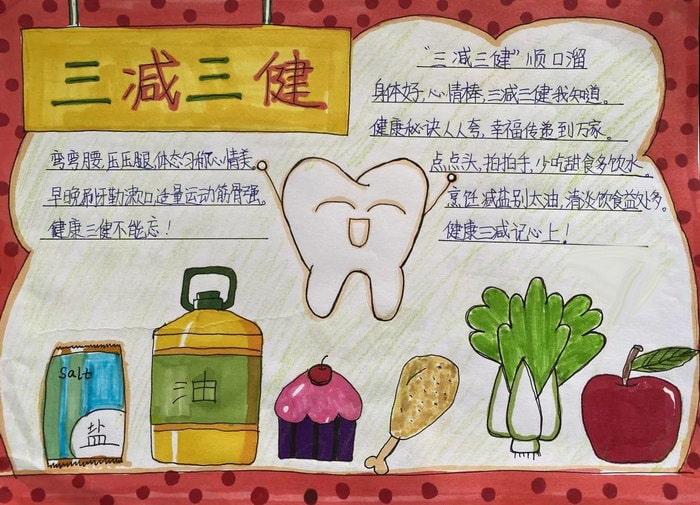 三减三健
“三减三健”顺口溜
身体好,心情棒,三减三健我知道。
健康秘诀人人夸,幸福传递到万家。
点点头,拍拍手,少吃甜食多饮水。
烹饪减盐别太油,清淡饮食益处多。
健康三减记心上!
弯弯腰,压压腿,体态匀称心情美。
早晚刷牙勤漱口,适量运动筋骨强。
健康三健不能忘!
salt
盐
油